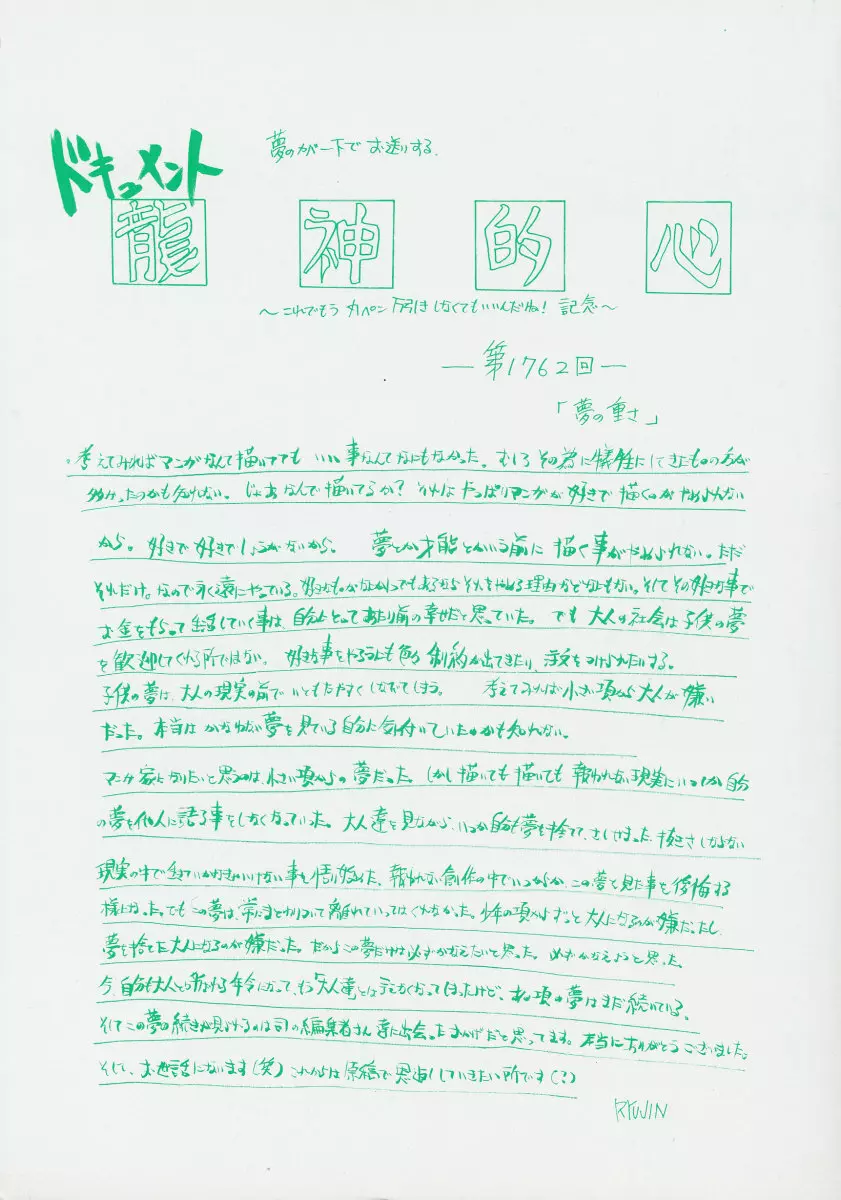 ドキュメント
夢のカバー下でお送りする.
龍神的心
〜これでもうカペン下引きしなくてもいいんだね! 記念〜
—第1762回—
「夢の重さ」
。考えてみればマンガなんて描いててもいい事なんてなにもなかった。むしろその為に犠牲にしてきたものの方が
多かったのかも知れない。じゃあなんで描いてるか? それはやっぱりマンガが好きで描くのがやめられない
から。好きで好きでしょうがないから。 夢とか才能とかいう前に描く事がやめられない。ただ
それだけ。なので永遠にやっている。好きなものがなにかしらでもあるならそれをやめる理由などなにもない。そしてその好きな事で
お金をもらって生活していく事は、自分にとってあたり前の幸せだと思っていた。でも大人の社会は子供の夢
を歓迎してくれる所ではない。好きな事をやるにも色々制約が出てきたり、注文をつけられたりする。
子供の夢は、大人の現実の前でいともたやすくしなびてしまう。 考えてみれば小さい頃から大人が嫌い
だった。本当はかなわない夢を見ている自分に気付いていたのかも知れない。
マンガ家になりたいと思うのは、小さい頃からの夢だった。しかし描いても描いても報われない現実にいつしか自分
の夢を他人に語る事をしなくなっていった。大人達を見ながら、いつか自分も夢を捨て、せましなない
現実の中で生きていかなきゃいけない事を悟り始めた。報われない創作の中でいつからか、この夢を見た事を後悔する
様になった。でもこの夢は、常にまとわりついて離れていってはくれなかった。少年の頃からずっと大人になるのが嫌だったし、
夢を捨てた大人になるのが嫌だった。だからこの夢だけは必ずかなえたいと思った。必ずかなえようと思った。
今、自分も大人と呼ばれる年令になって、もう「大人達」とは言えなくなってしまったけど、あの頃の夢はまだ続いている。
そしてこの夢の続きが見られるのは司の編集者さん達に出会ったおかげだと思ってます。本当にありがとうございました。
そして、お世話になります(笑) これからは原稿で恩返ししていきたい所です(?)
RYUJIN